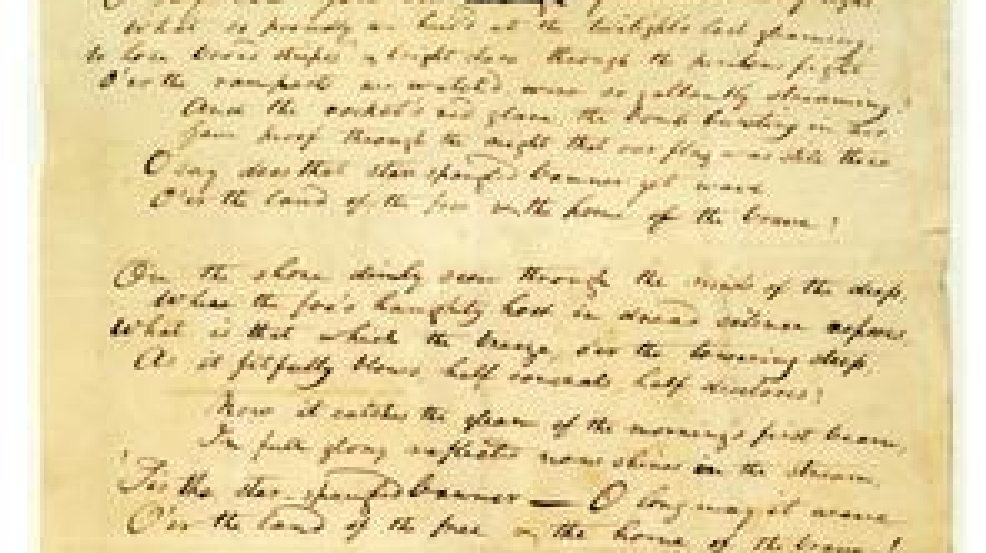 O say can you see by
What so proudly we hail'd at the twilight's last gleaming,
Whose broad stripes & bright stars through the perilous fight
O'er the ramparts we watch'd, were so gallantly streaming?
And the rocket's red glare, the bomb bursting in air,
Gave proof through the night that our flag was still there
O say does that star-spangled banner yet wave
O'er the land of the free & the home of the brave?
On the shore dimly seen through the mists of the deep,
Where the foe's haughty host in dread silence reposes,
What is that which the breeze, o'er the towering steep,
As it fitfully blows, half conceals half discloses?
Now it catches the gleam of the morning's first beam,
In full glory reflected now shines in the stream,
'Tis the star-spangled banner — O long may it wave
O'er the land of the free & the home of the brave!